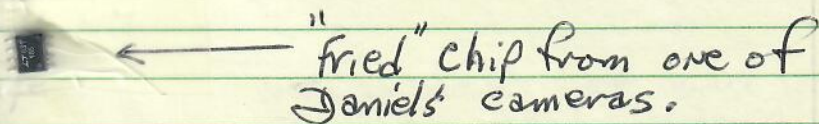 "fried" chip from one of
Daniel's cameras.